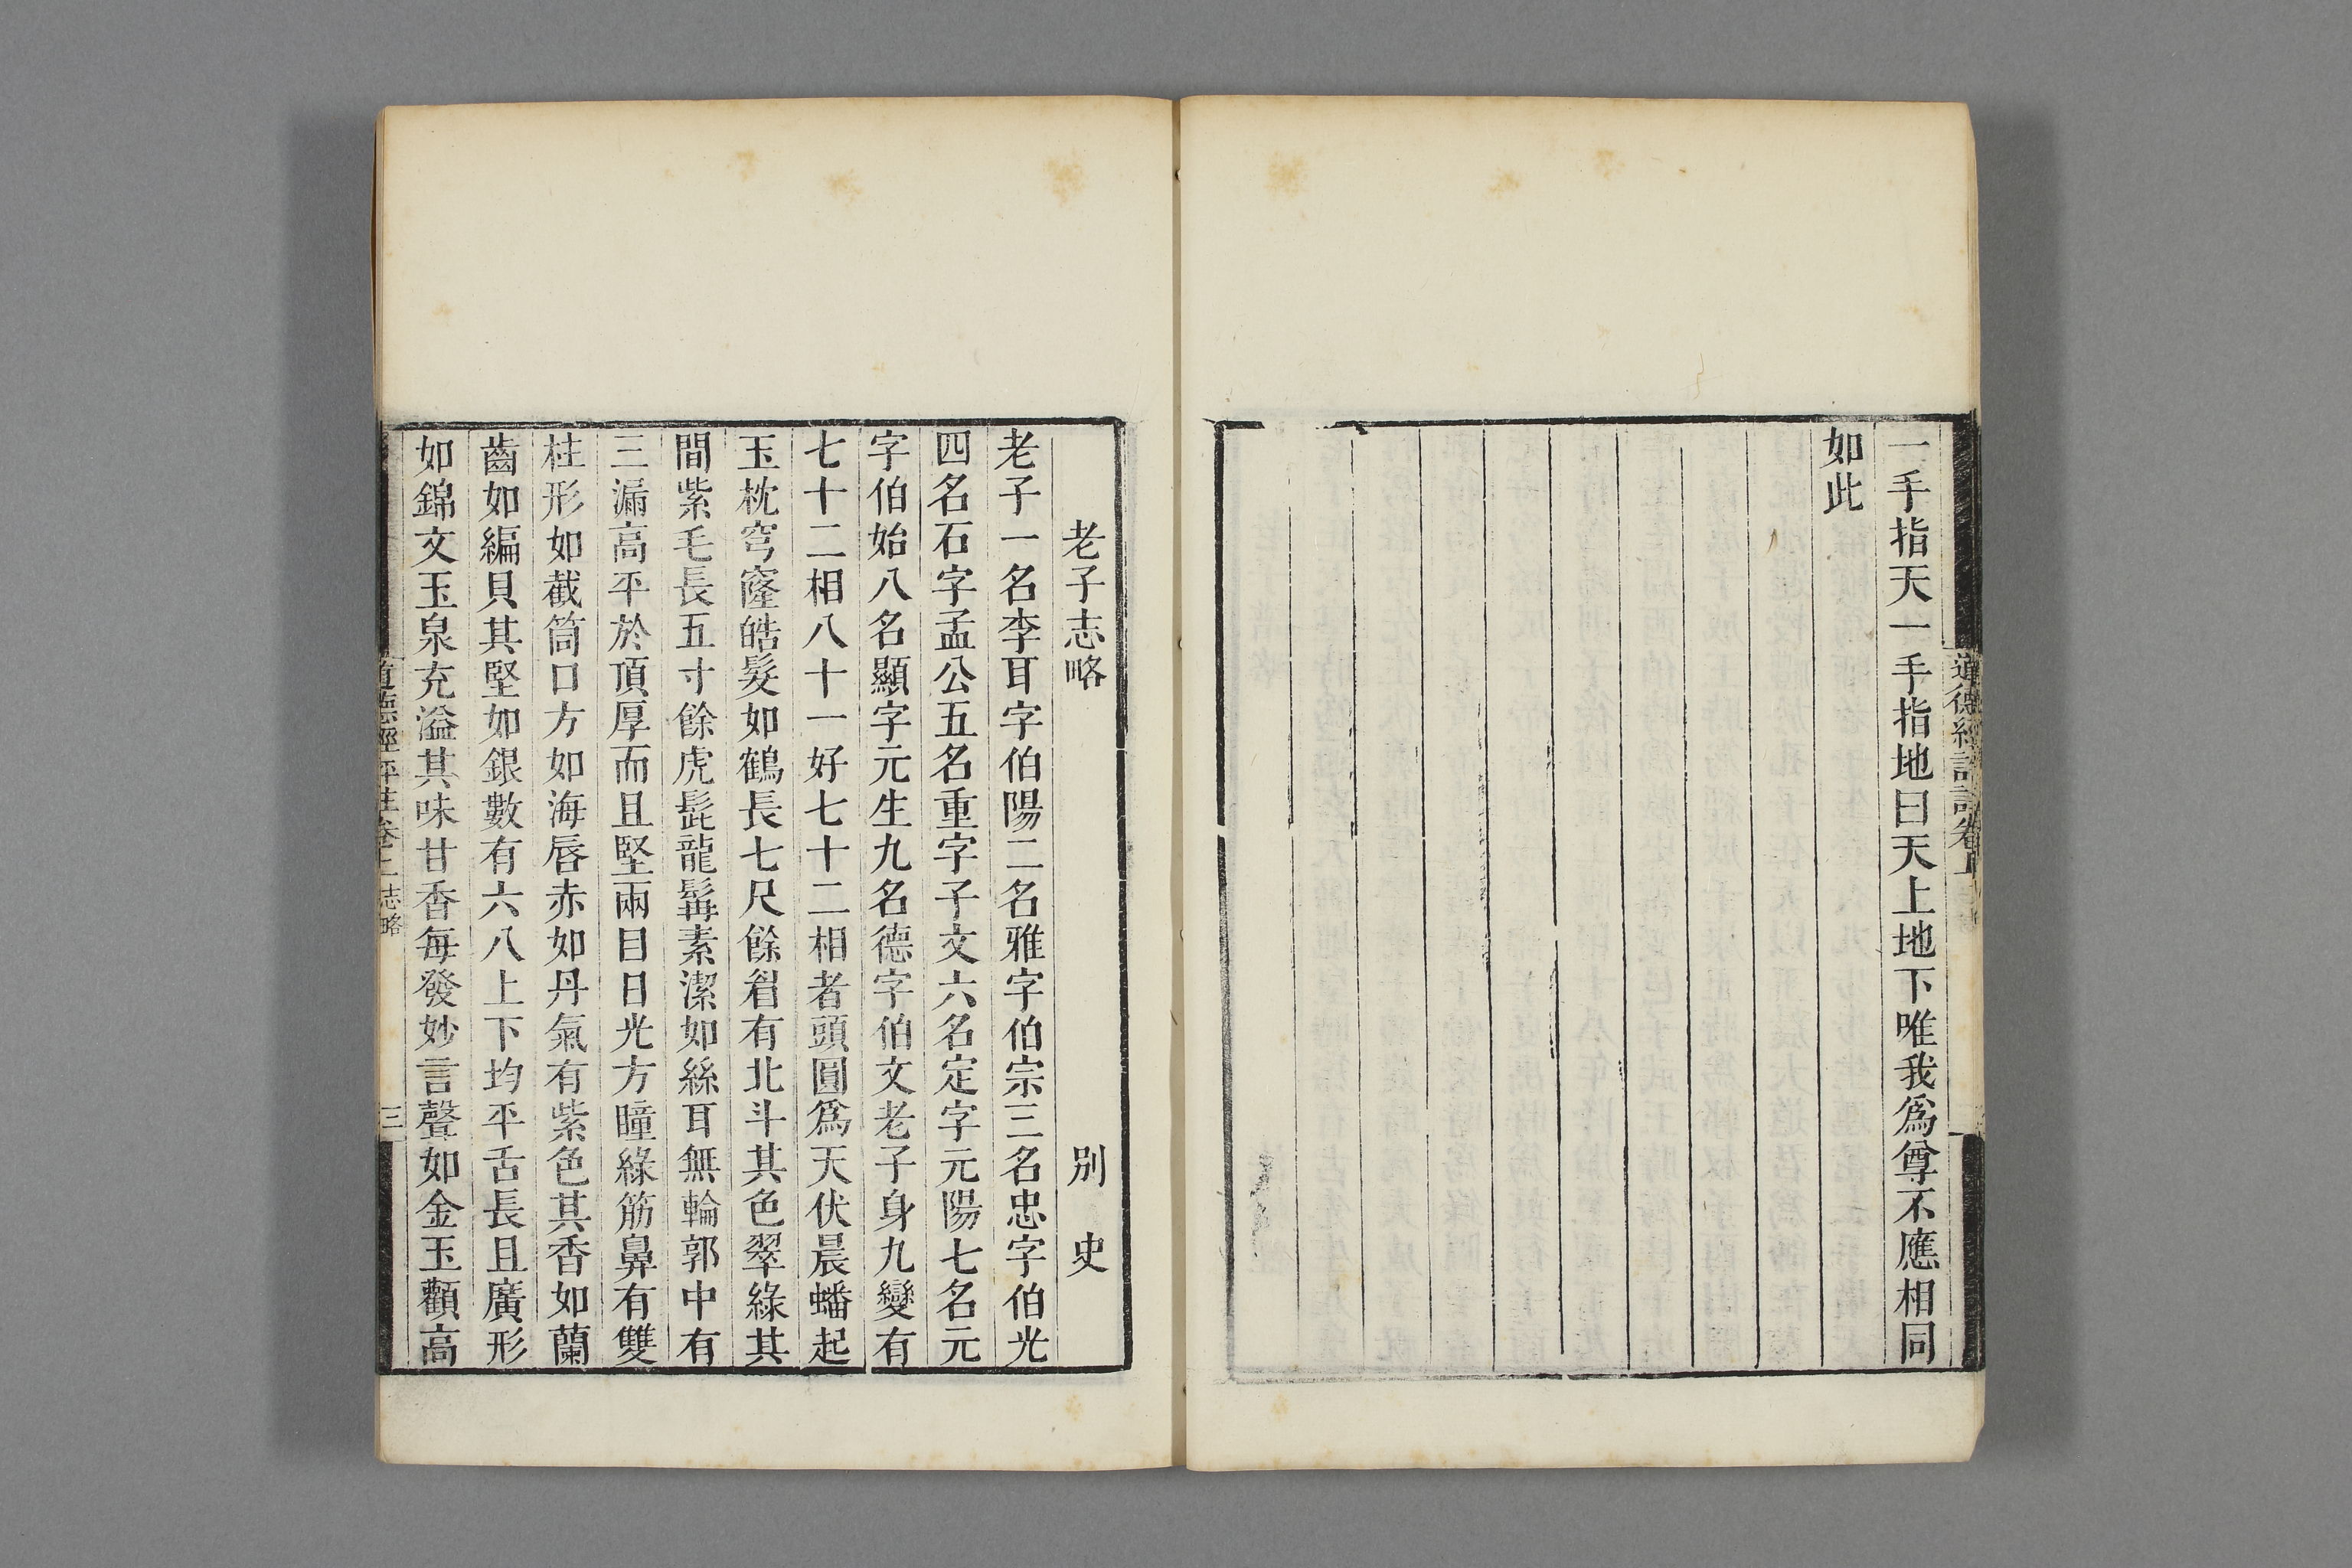 一手指天一手指地曰天上地下唯我爲尊不應相同
如此
道德經評註卷上
老子志略 別史
老子一名李耳字伯陽二名雅字伯宗三名忠字伯光
四名石字孟公五名重字子文六名定字元陽七名元
字伯始八名顯字元生九名德字伯文老子身九變有
七十二相八十一好七十二相者頭圓爲天伏晨蟠起
玉枕穹窿皓髮如鶴長七尺餘眉有北斗其色翠綠其
間紫毛長五寸餘虎髭龍髯素潔如絲耳無輪郭中有
三漏高平於頂厚而且堅兩目日光方瞳綠筋鼻有雙
柱形如截筒口方如海唇赤如丹氣有紫色其香如蘭
齒如編貝其堅如銀數有六八上下均平舌長且廣形
如錦文玉泉充溢其味甘香每發妙言聲如金玉顴高
道德經評註卷上 志略 三